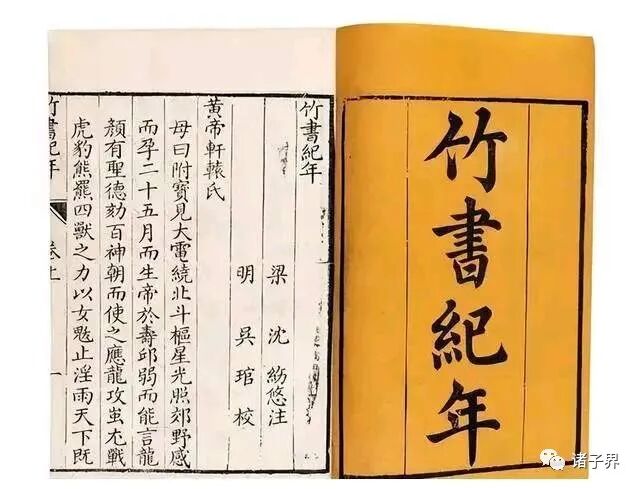 竹書紀年
竹書紀年
梁 沈約悠注
明 吳琯校
黃帝軒轅氏
母曰附寶見大電繞北斗樞星光照郊野感
而孕二十五月而生帝於壽邱弱而能言龍
顏有聖德劾百神朝而使之應龍攻蚩尤戰
虎豹熊羆四獸之力以女魃止淫雨天下既
竹書紀年 卷上 一
诸子界